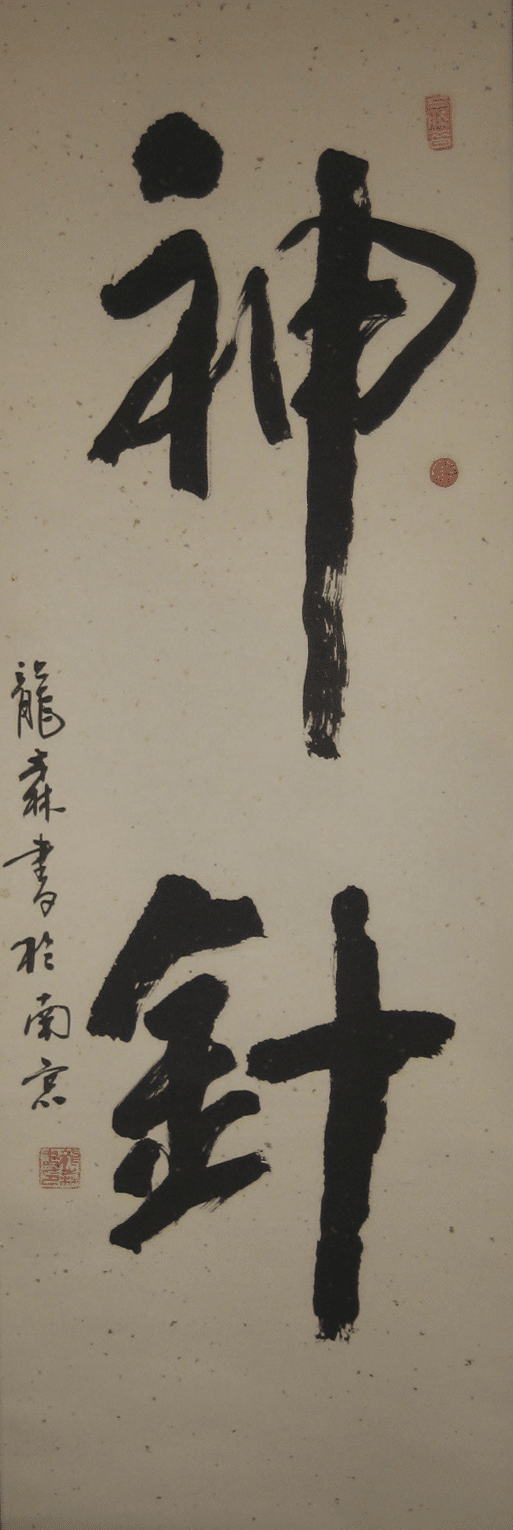 神針
龍森書於南京